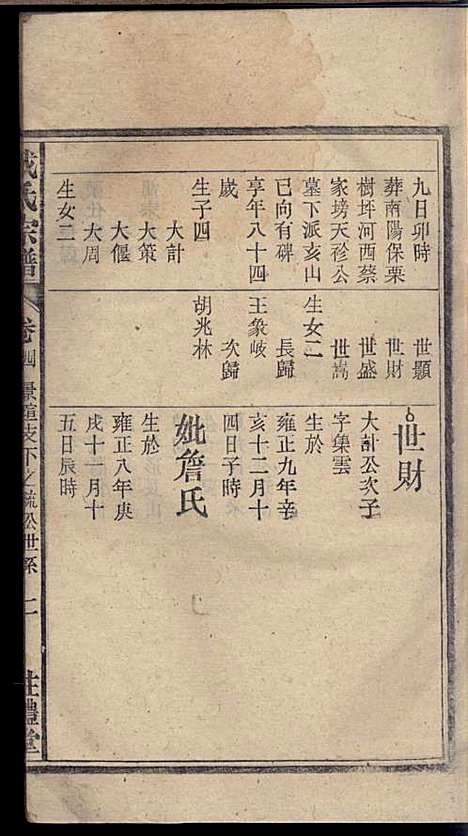 九日卯時
葬南陽保栗
樹坪河西蔡
家塝天袗公
墓下派亥山
巳向有碑
享年八十四
歲
生子四
大計
大策
大偃
大周
生女二
世顯
世財
世盛
世嵩
生女二
長歸
王象岐
次歸
胡兆林
世財
大計公次子
字集雲
生於
雍正九年辛
亥十二月十
四日子時
妣詹氏
生於
雍正八年庚
戌十一月十
五日辰時
氏宗譜
卷四
支下之
公世系
二
世禮堂